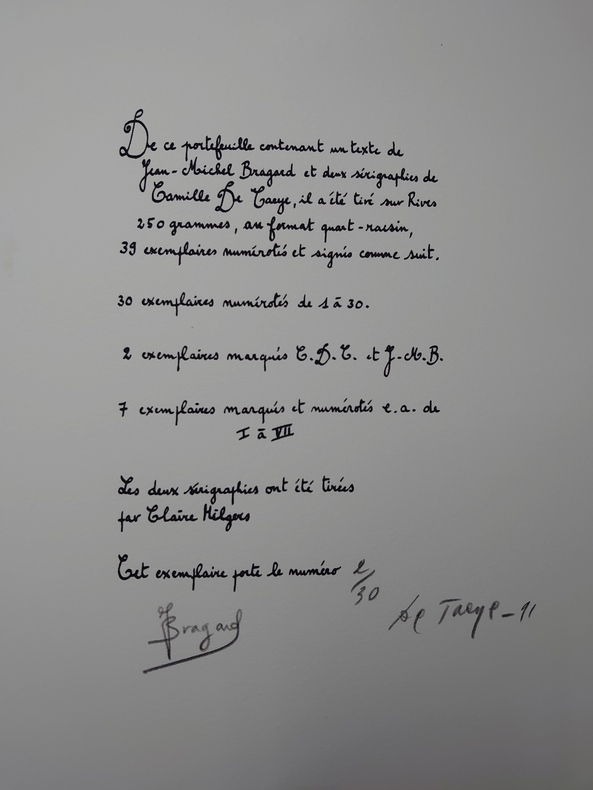 De ce portefeuille contenant un texte de
Jean-Michel Bragard et deux sérigraphies de
Camille De Taeye, il a été tiré sur Rives
250 grammes, au format quart-raisin,
39 exemplaires numérotés et signés comme suit.
30 exemplaires numérotés de 1 à 30.
2 exemplaires marqués C.D.T. et J-M.B.
7 exemplaires marqués et numérotés e.a. de
I à VII
Les deux sérigraphies ont été tirées
par Claire Hilgers
Cet exemplaire porte le numéro 2/30
JBragard
De Taeye - 91